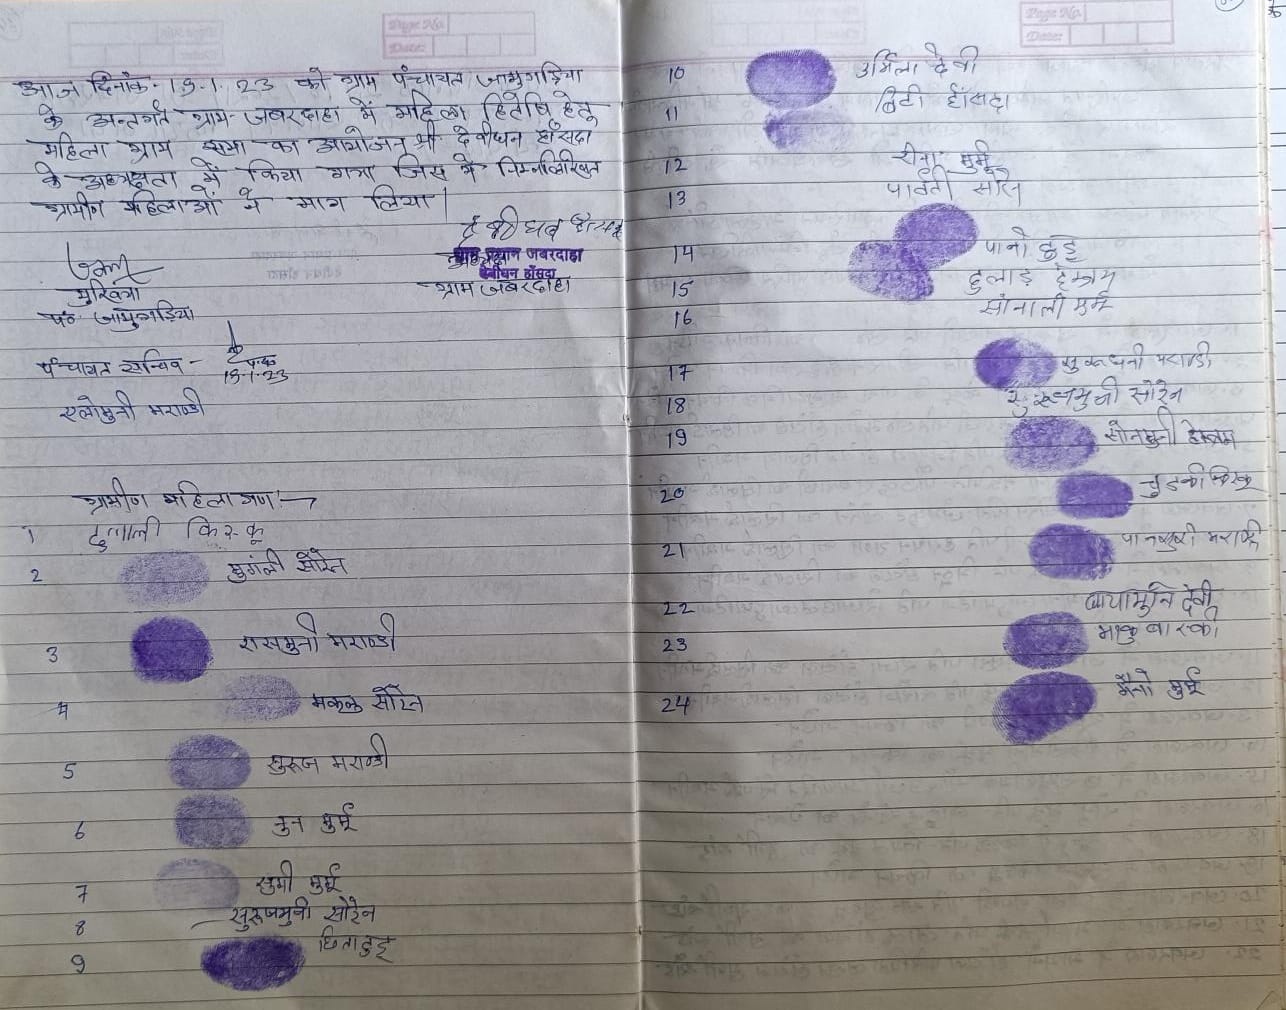 Page No.
Date:
आज दिनांक- 19.1.23 को ग्राम पंचायत जामुगड़िया
के अन्तर्गत ग्राम- जबरदाहा में महिला हितैषि हेतू
महिला ग्राम सभा का आयोजन श्री देवीधन हाँसदा
के अध्यक्षता में किया गया जिस में निम्नलिखित
ग्रामीण महिलाओं ने भाग लिया।
देवीधन हाँसदा
ग्राम प्रधान जबरदाहा
देवीधन हाँसदा
ग्राम जबरदाहा
मुखिया
पं० जामुगड़िया
पंचायत सचिव-
19.1.23
एलोमुनी मराण्डी
ग्रामीण महिला गण :→
1 दुलाली किस्कू
2 मुंगली सोरेन
3 रासमुनी मराण्डी
4 मकलु सोरेन
5 सुरूज मराण्डी
6 नुन मुर्मू
7 सुमी मुर्मू
8 सुरूजमुनी सोरेन
9 छिता टुडू
Page No.
Date:
10 उर्मिला देवी
11 बिटी हाँसदा
12 रीना मुर्मू
13 पार्वती सोरेन
14 पानो टुडू
15 दुलाड़ हेम्ब्रम
16 सोनाली मुर्मू
17 सुरूधनी मराण्डी
18 सुरूजमुनी सोरेन
19 सोनमुनी हेम्ब्रम
20 चुड़की किस्कू
21 पानसुरी मराण्डी
22 बायामुनि देवी
23 माकु बास्की
24 मैनो मुर्मू